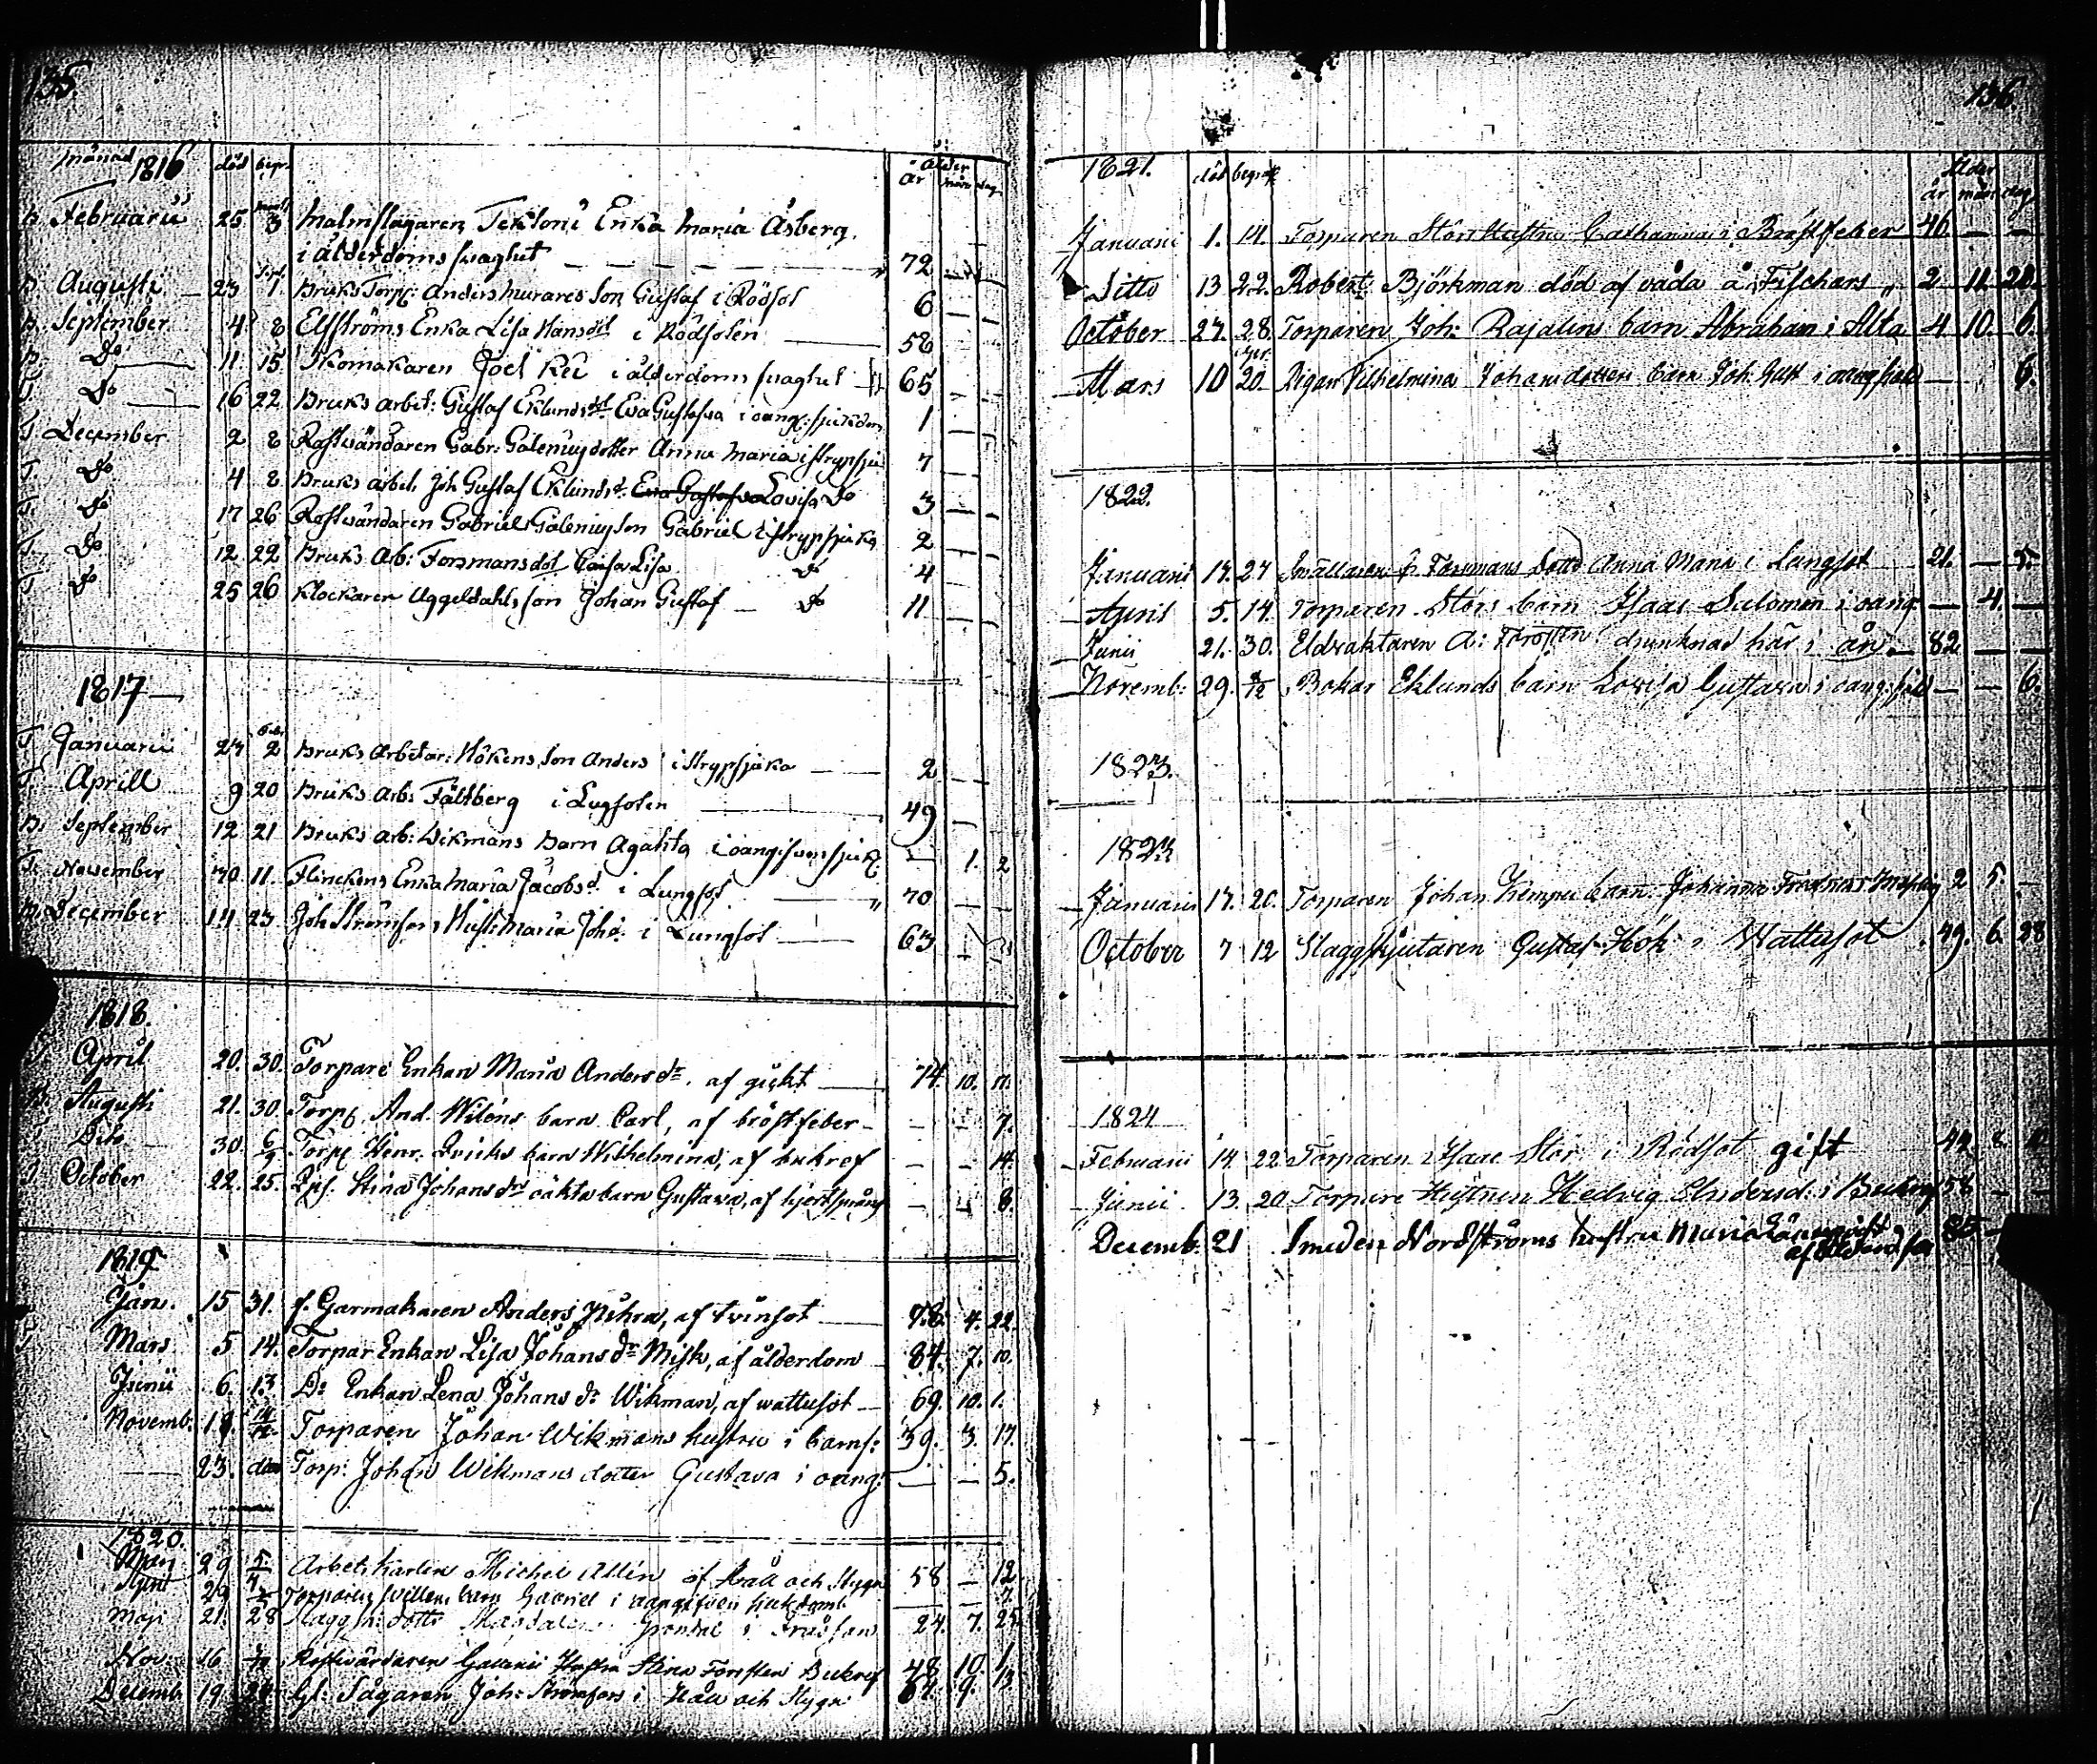 135.
månad 1816 död begr. ålder
år mån dag
Februarii 25 3 Malmslagaren Enka Maria Åsberg
i ålderdoms svaghet 72
Augusti 23 1 Bruks Torp: Anders Murares Son Gustaf i Rödsot 6
September 4 8 Elfströms Enka Lisa Hansdot i Rödsoten 58
Do 11 15 Skomakaren Joel i ålderdoms svaghet 65
Do 16 22 Bruks arbet: Gustaf Eklunds dot Eva Gustafva i oang: sjukdom 1
December 2 8 Rostvändaren Gabr: Galenius dotter Anna Maria i strypsju 7
Do 4 8 Bruks arbet. Joh Gustaf Eklunds d. Eva Gustafva Lovisa Do 3
Do 17 26 Rostvändaren Gabriel Galenius son Gabriel i strypsjuka 2
Do 12 22 Bruks Arb: Forsmans dot Caisa Lisa Do 4
Do 25 26 Klockaren Uggeldahls son Johan Gustaf Do 11
1817
Januarii 27 2 Bruks Arbetar: Hökens Son Anders i strypsjuka 2
Aprill 9 20 Bruks Arb: Fältberg i Lugsoten 49
September 12 21 Bruks arb: Wikmans Barn Agahta i oangifven sjuk 1. 2
November 30. 11. Flinckens Enka Maria Jacobs d. i Lungsot 70
December 14 23 Joh Strömfors Hust: Maria Joh d. i Lungsot 63
1818.
April 20. 30. Torpare Enkan Maria Anders dr. af gickt 74. 10. 11.
Augusti 21. 30. Torp. And. Wiléns barn Carl, af bröstfeber 7.
Dito 30. 6/9 Torp Henr. barn Wilhelmina, af bukref 14.
October 22. 25. Stina Johans dr oäkta barn Gustava, af hjertsprång 8.
1819
Jan. 15 31. f. Garmakaren Anders, af tvinsot 78. 4. 22.
Mars 5 14. Torpar Enkan Lisa Johans dr Misk, af ålderdom 84. 7. 10.
Junii 6. 13 Do Enkan Lena Johans dr Wikman, af wattusot 69. 10. 1.
Novemb. 18. Torparen Johan Wikmans hustru i barns: 39. 3. 17.
23. dito Torp: Johan Wikmans dotter Gustava i oang: 5.
1820.
29 5/4 Arbetskarlen Michel Allén af Håll och Stygn 58 12
April 29 Torparen barn Gabriel i oangifven sjukdomb 7
Maji 21. 28 dottr Magdalena 24. 7. 25
Nov: 16 Rostvändaren Galenii Hustru Stina Forsten Bukref 48 10. 1
Decemb 19 Gl: Sågaren Joh: Strömfors i Håll och Stygn 64. 9. 13
136
1821. död begraf Ålder
år mån dag
Januarii 1. 14 Torparen Störs Hustru Catharina i Bröstfeber 46
Ditto 13 22. Robert Björkman död af våda å Fischars 2 11 28.
October 27. 28. Torparen Joh: Rajalins barn Abraham i Alta 4 10. 6.
Mars 10 20 Pigan Vilhelmina Johansdotters barn Joh. Gust i oang sjuk 6.
1822.
Januarii 17. 27 Smällaren Forsmans Dotter Anna Maria i Lungsot 21. 5.
April 5. 14. Torparen Störs barn Isaac Salomon i oang. 4.
Junii 21. 30. Eldvaktaren A: drunknad här i ån 82
Novemb: 29. 8/12 Bokar Eklunds barn Lovisa Gustava i oang: sjuk 6.
1823.
1823
Januarii 17. 20. Torparen Johan barn Johanna 2 5.
October 7 12 Slaggskjutaren Gustaf Hök i Wattusot 49. 6. 28
1824
Februarii 14. 22 Torparen Isaac Stör i Rödsot gift 44.
Junii 13. 20 Torpare Hustrun Hedvig Andersd. i 58
Decemb. 21 Smeden Nordströms hustru Maria
af 85